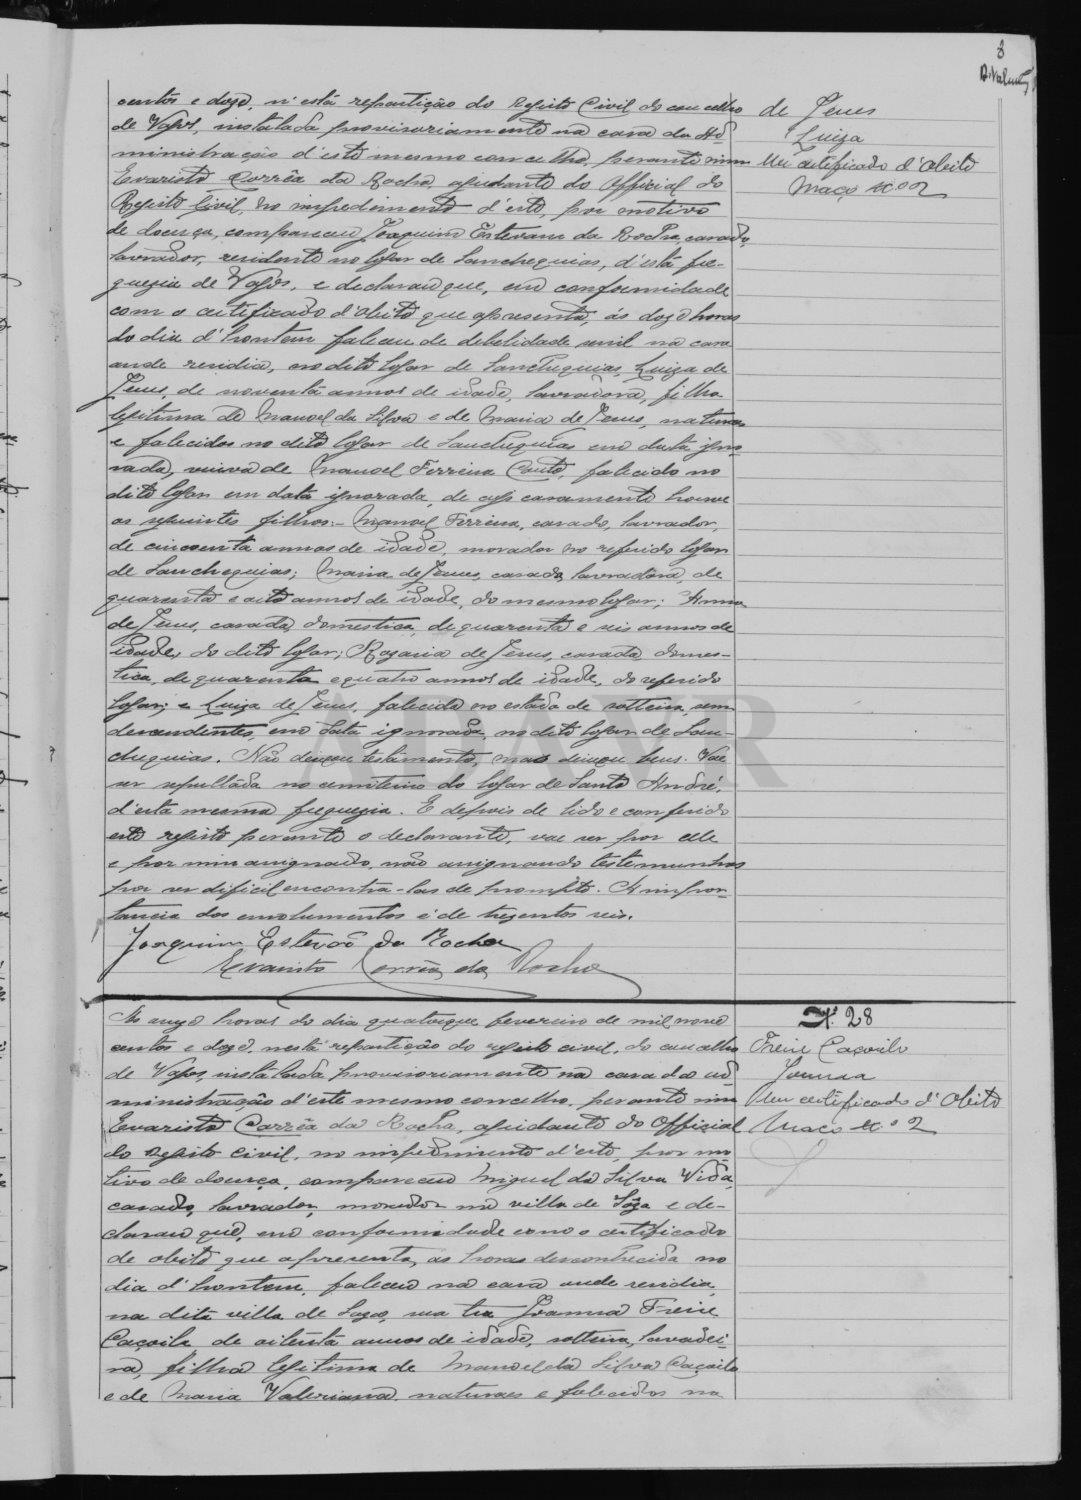 8
centos e doze, n'esta repartição do registo Civil do concelho
de Vagos, installada provisoriamente na casa da Ad-
ministração d'este mesmo concelho, perante mim
Evaristo Corrêa da Rocha, ajudante do Official do
Registo Civil, no impedimento d'este, por motivo
de doença, compareceu Joaquim Estevam da Rocha, casado,
lavrador, residente no logar de Sanchequias, d'esta fre-
guezia de Vagos, e declarou que, em conformidade
com o certificado d'obito que apresenta, ás doze horas
do dia d'hontem faleceu de debelidade senil na casa
onde residia, no dito logar de Sanchequias, Luiza de
Jesus, de noventa annos de idade, lavradora, filha
legitima de Manoel da Silva e de Maria de Jesus, naturaes
e falecidos no dito logar de Sanchequias em data igno-
rada, viuva de Manoel Ferreira Couto, falecido no
dito logar em data ignorada, de cujo casamento houve
os seguintes filhos:- Manoel Ferreira, casado, lavrador,
de cincoenta annos de idade, morador no referido logar
de Sanchequias; Maria de Jesus, casada, lavradora, de
quarenta e oito annos de idade, do mesmo logar; Anna
de Jesus, casada, domestica, de quarenta e seis annos de
idade, do dito logar; Rozaria de Jesus, casada, domes-
tica, de quarenta e quatro annos de idade, do referido
logar; e Luiza de Jesus, falecida no estado de solteira, sem
descendentes, em data ignorada, no dito logar de San-
chequias. Não deixou testamento, mas deixou bens. Vae
ser sepultada no cemiterio do logar de Santo André,
d'esta mesma freguezia. E depois de lido e conferido
este registo perante o declarante, vae ser por elle
e por mim assignado, não assignando testemunhas
por ser dificil encontra-las de prompto. A impor-
tancia dos emolumentos é de trezentos reis.
Joaquim Estevão da Rocha
Evaristo Corrêa da Rocha
de Jesus
Luiza
Um certificado d'obito
Maço nº 2
As onze horas do dia quatorze fevereiro de mil nove
centos e doze, nesta repartição do registo civil, do concelho
de Vagos, installada provisoriamente na casa da ad-
ministração d'este mesmo concelho, perante mim
Evaristo Corrêa da Rocha, ajudante do Official
do registo civil, no impedimento d'este, por mo-
tivo de doença, compareceu Miguel da Silva Vida,
casado, lavrador, morador na villa de Sôza e de-
clarou que, em conformidade com o certificado
de obito que apresenta, ás horas desconhecida no
dia d'hontem, faleceu na casa onde residia,
na dita villa de Soza, sua tia Joanna Freire
Caçoila, de oitenta annos de idade, solteira, lavradei-
ra, filha legitima de Manoel da Silva Caçoila
e de Maria Valeriana, naturaes e falecidos na
Nº 28
Freire Caçoilo
Joanna
Um certificado d'Obito
Maço nº 2
ADAVR